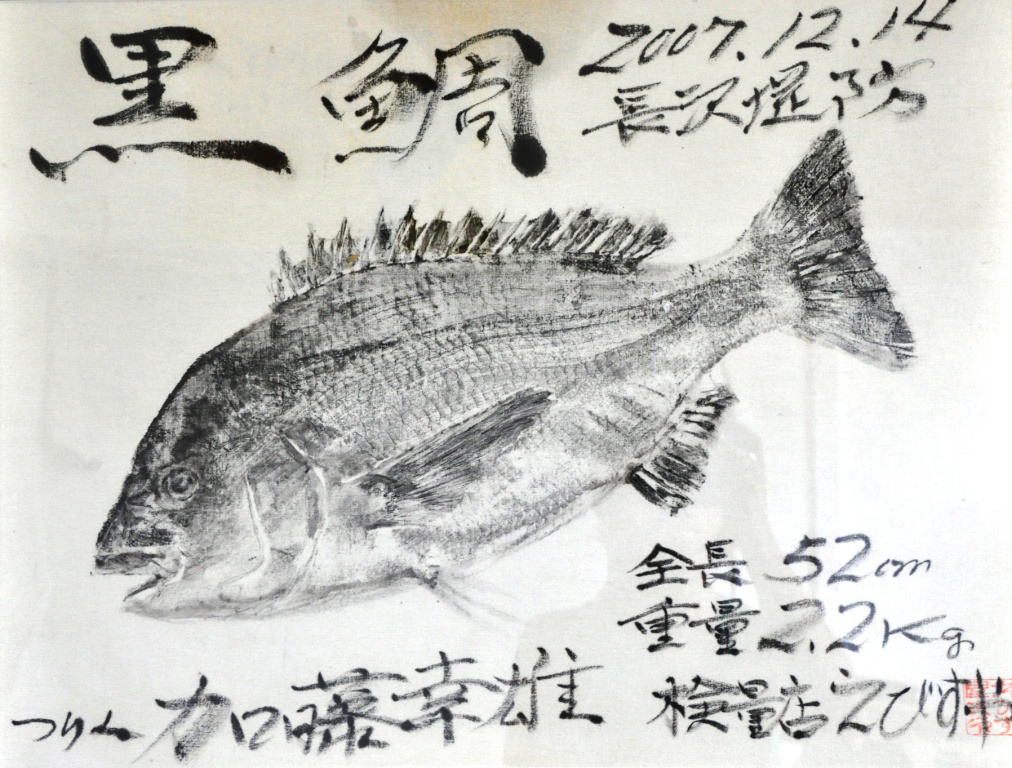 黒鯛
2007.12.14
長沢堤防
全長 52cm
重量 2.2Kg
検量店えびす丸
つり人 加藤幸雄